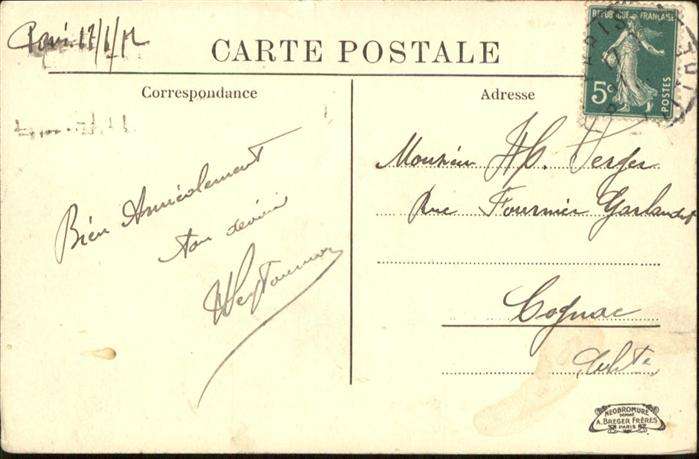 Paris 17/1/12
CARTE POSTALE
Correspondance
Adresse
RÉPUBLIQUE FRANÇAISE
5c
POSTES
PARIS
Bien Amicalement
Ton dévoué
Monsieur H. Verger
Rue Fournier Garlandat
Cognac
NEOBROMURE
A. BREGER FRÈRES
PARIS